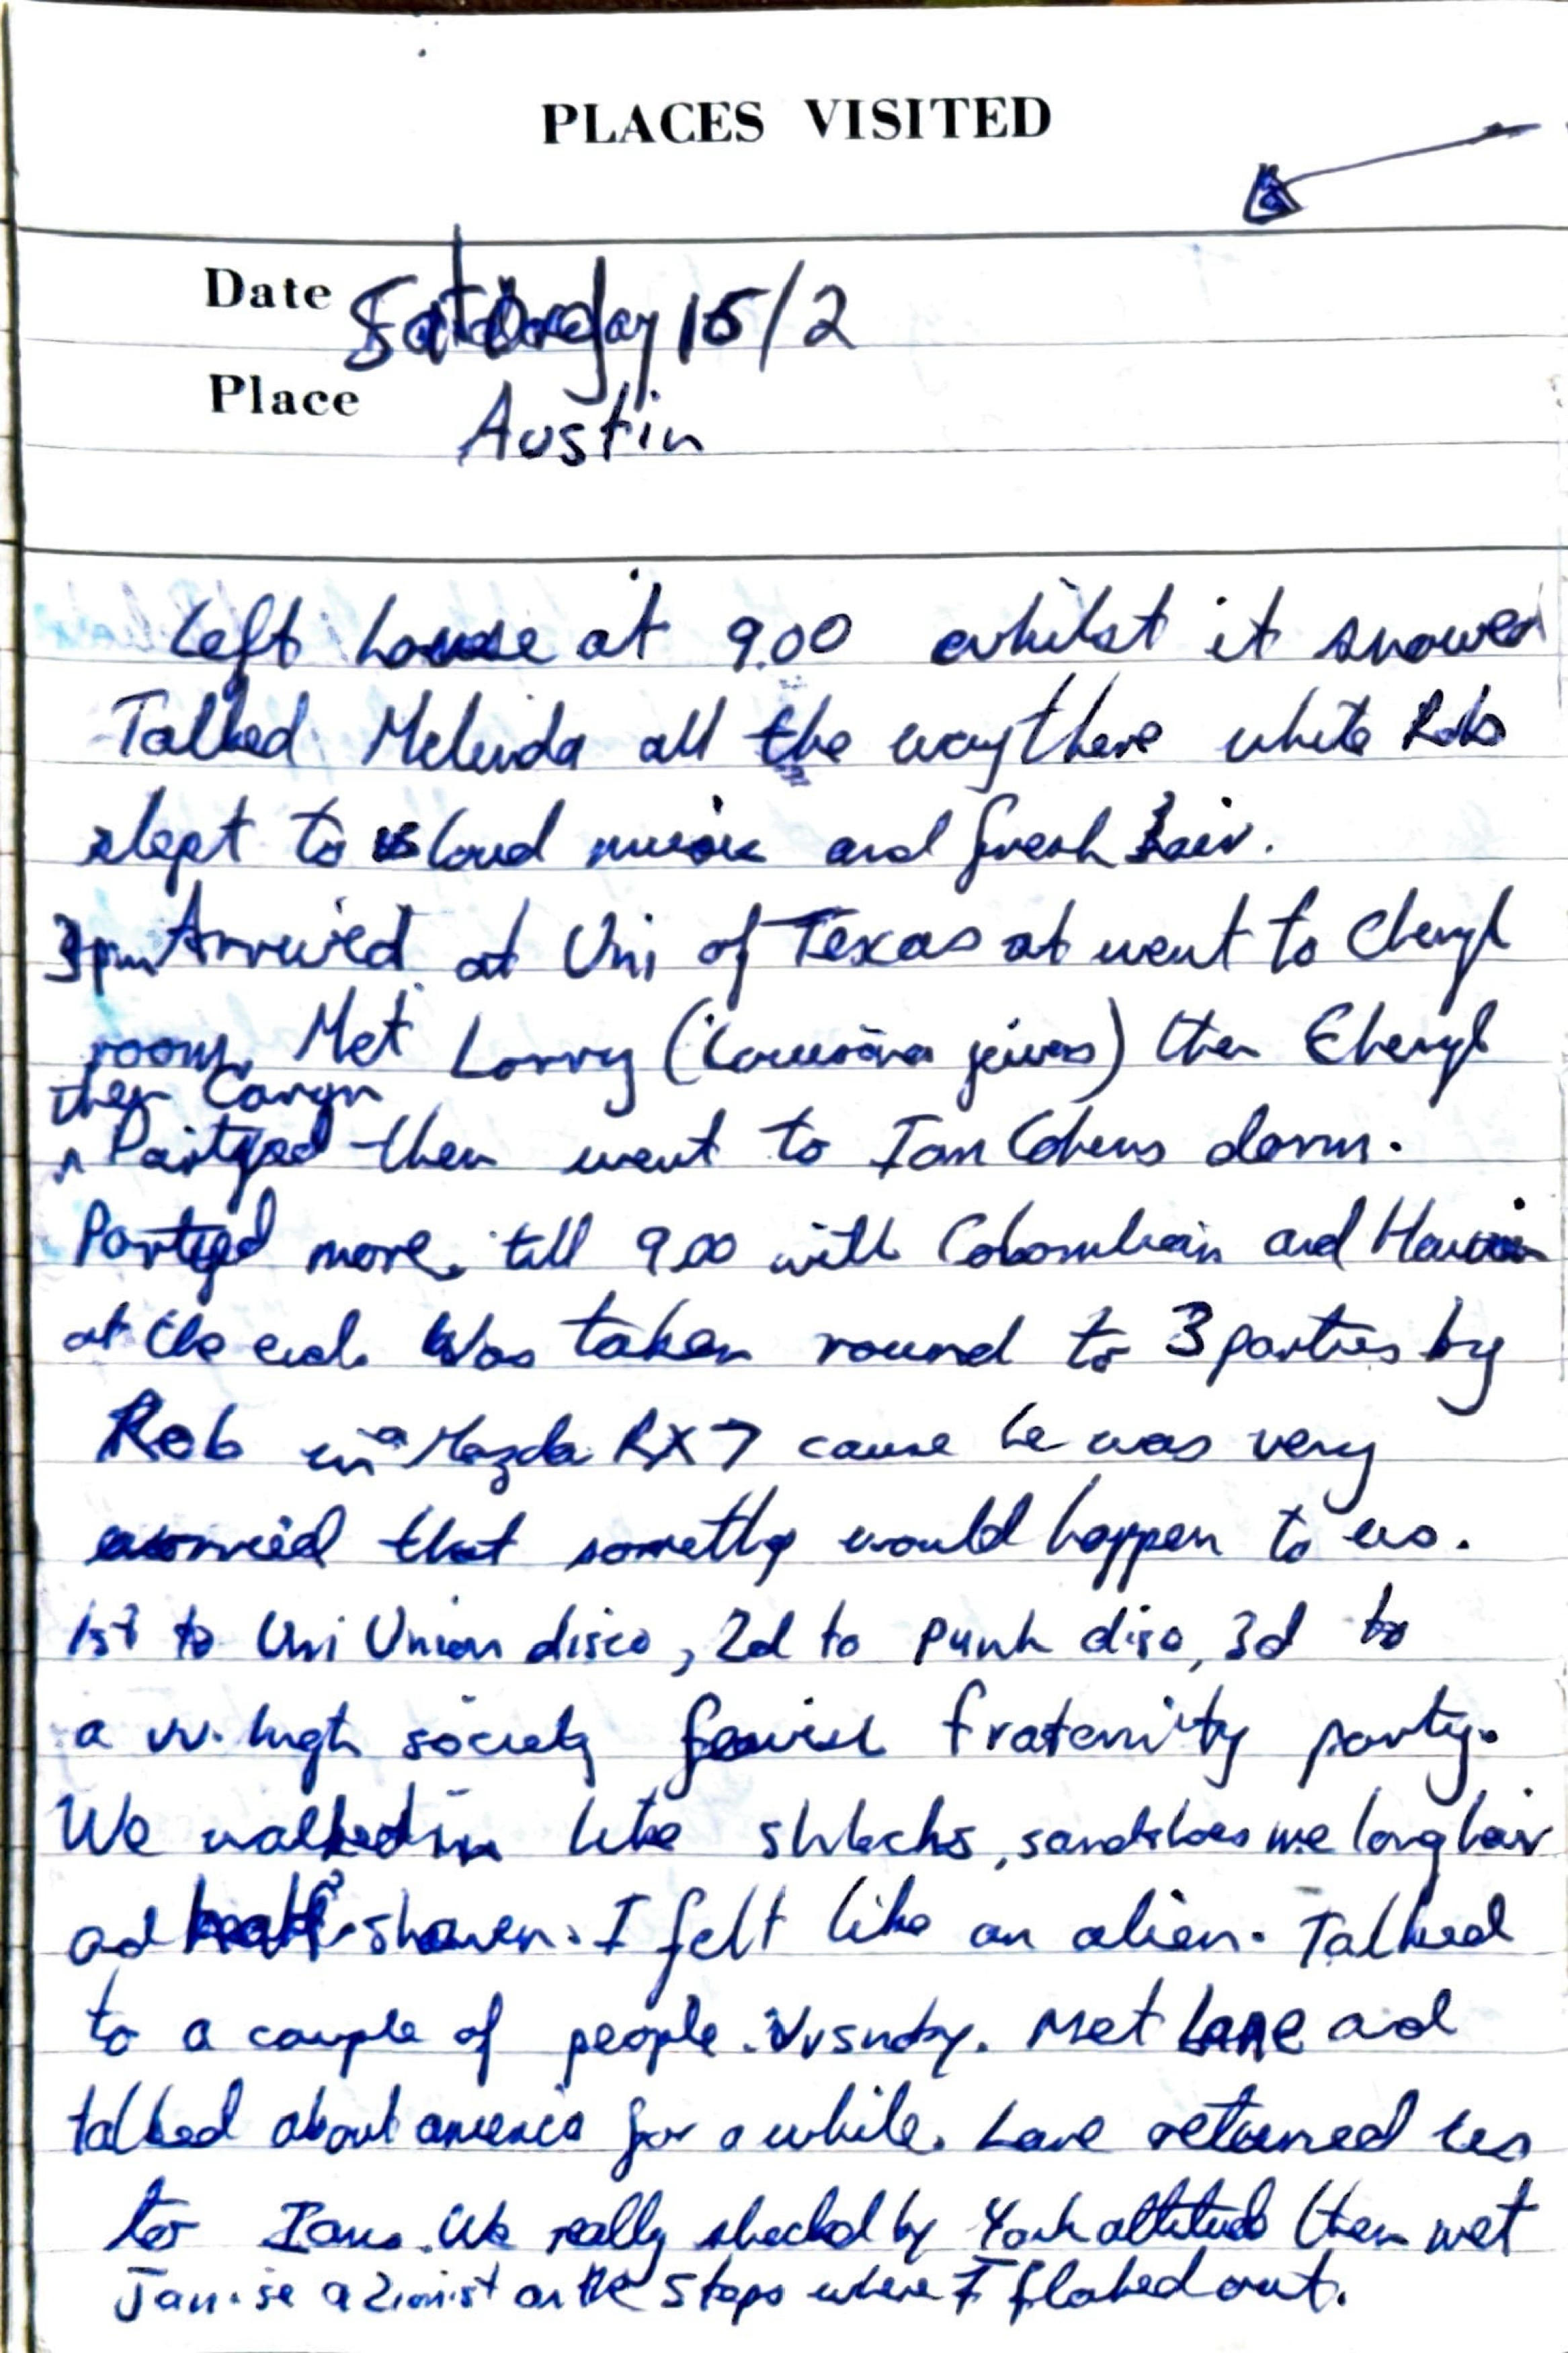 PLACES VISITED
Date Saturday 15/2
Place Austin
Left house at 9.00 whilst it snowed
Talked Melinda all the way there white Rob
slept to loud music and fresh air.
3pm Arrived at Uni of Texas at went to Cheryl
room, Met Lorry ( ) then Cheryl
then Caryn
Partyed then went to Ian Cohens dorm.
Partyed more, till 9.00 with Colombian and
at the end. Was taken round to 3 parties by
Rob in a Mazda RX7 cause he was very
worried that somethg would happen to us.
1st to Uni Union disco, 2d to punk diso, 3d to
a vv. high society fraternity party.
We walked in like shlocks, sandshoes me long hair
ad half shaven. I felt like an alien. Talked
to a couple of people. Met Lane ad
talked about america for a while. Lane returned us
to Ians. We really shocked by attitude then met
Janise a Zionist on the steps where I flaked out.